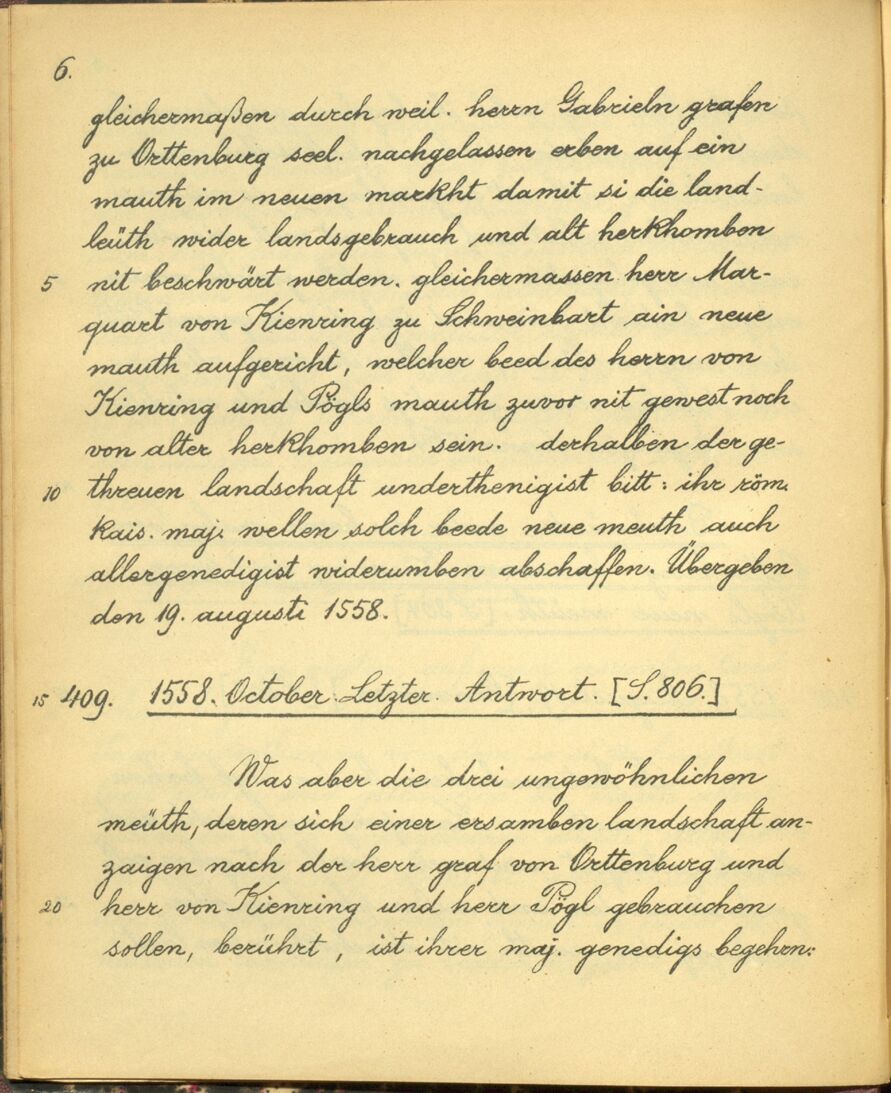 6.
gleichermaßen durch weil. herrn Gabrieln grafen
zu Orttenburg seel. nachgelassen erben auf ein
mauth im neuen markht damit si die land-
leüth wider landsgebrauch und alt herkhomben
5 nit beschwärt werden. gleichermassen herr Mar-
quart von Kienring zu Schweinbart ain neue
mauth aufgericht, welcher beed des herrn von
Kienring und Pögls mauth zuvor nit gewest noch
von alter herkhomben sein. derhalben der ge-
10 threuen landschaft underthenigist bitt: ihr röm.
kais. maj. wellen solch beede neue meuth auch
allergenedigist widerumben abschaffen. Übergeben
den 19. augusti 1558.
15 409. 1558. October. Letzter Antwort. [S. 806.]
Was aber die drei ungewöhnlichen
meüth, deren sich einer ersamben landschaft an-
zaigen nach der herr graf von Orttenburg und
20 herr von Kienring und herr Pögl gebrauchen
sollen, berührt, ist ihrer maj. genedigs begehrn: